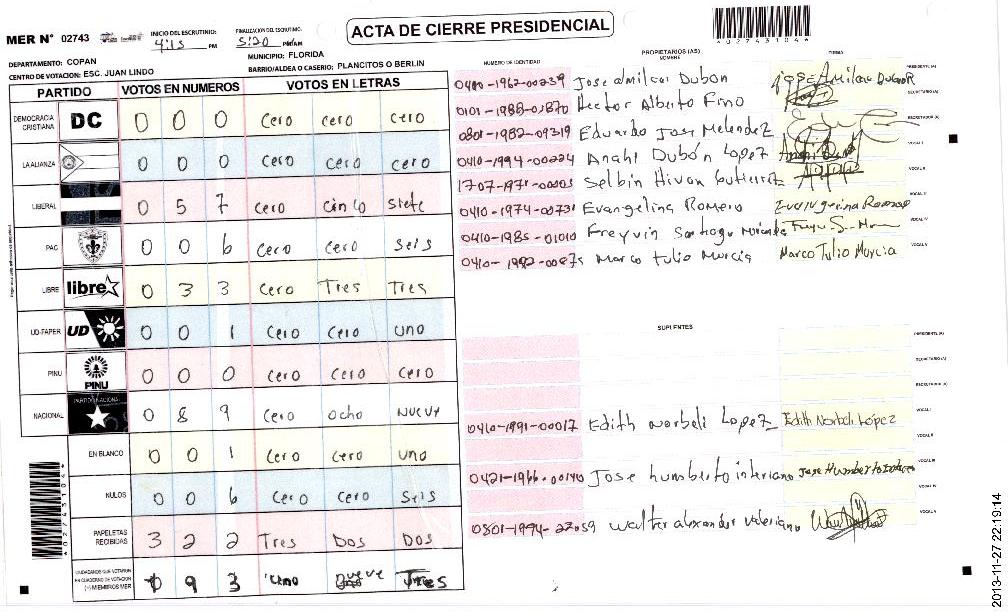 ACTA DE CIERRE PRESIDENCIAL
MER N° 02743
INICIO DEL ESCRUTINIO: 4:15 PM
FINALIZACION DEL ESCRUTINIO: 5:20 PM/AM
A02743104A
DEPARTAMENTO: COPAN
MUNICIPIO: FLORIDA
CENTRO DE VOTACION: ESC. JUAN LINDO
BARRIO/ALDEA O CASERIO: PLANCITOS O BERLIN
PARTIDO VOTOS EN NUMEROS VOTOS EN LETRAS
DEMOCRACIA CRISTIANA DC 0 0 0 cero cero cero
LA ALIANZA 0 0 0 cero cero cero
LIBERAL 0 5 7 cero cinco siete
PAC 0 0 6 cero cero seis
LIBRE libre 0 3 3 cero Tres Tres
UD-FAPER UD 0 0 1 cero cero uno
PINU PINU 0 0 0 cero cero cero
NACIONAL PARTIDO NACIONAL 0 8 9 cero ocho nueve
EN BLANCO 0 0 1 cero cero uno
NULOS 0 0 6 cero cero seis
PAPELETAS RECIBIDAS 3 2 2 Tres Dos Dos
CIUDADANOS QUE VOTARON EN CUADERNO DE VOTACION (+) MIEMBROS MER 1 9 3 uno nueve Tres
A02743104A
PROPIETARIOS (AS)
NUMERO DE IDENTIDAD NOMBRE FIRMA
0410-1962-00239 Jose amilcar Dubon Jose Amilcar Dubon R PRESIDENTE (A)
0101-1988-01870 Hector Alberto Fino SECRETARIO (A)
0801-1982-09319 Eduardo Jose Melendez ESCRUTADOR (A)
0410-1994-00224 Anahi Dubón Lopez VOCAL I
1707-1971-00003 Selbin Hivan Gutierrez VOCAL II
0410-1974-00731 Evangelina Romero Evangelina Romero VOCAL III
0410-1985-01010 Freyvin Santiago Miranda VOCAL IV
0410-1992-00875 Marco tulio Murcia Marco Tulio Murcia VOCAL V
SUPLENTES
PRESIDENTE (A)
SECRETARIO (A)
ESCRUTADOR (A)
0410-1991-00017 Edith Norbeli Lopez Edith Norbeli López VOCAL I
VOCAL II
0421-1966-00140 Jose humberto interiano Jose Humberto VOCAL III
VOCAL IV
0801-1994-22059 walter alexander valeriano VOCAL V
2013-11-27 22:19:14